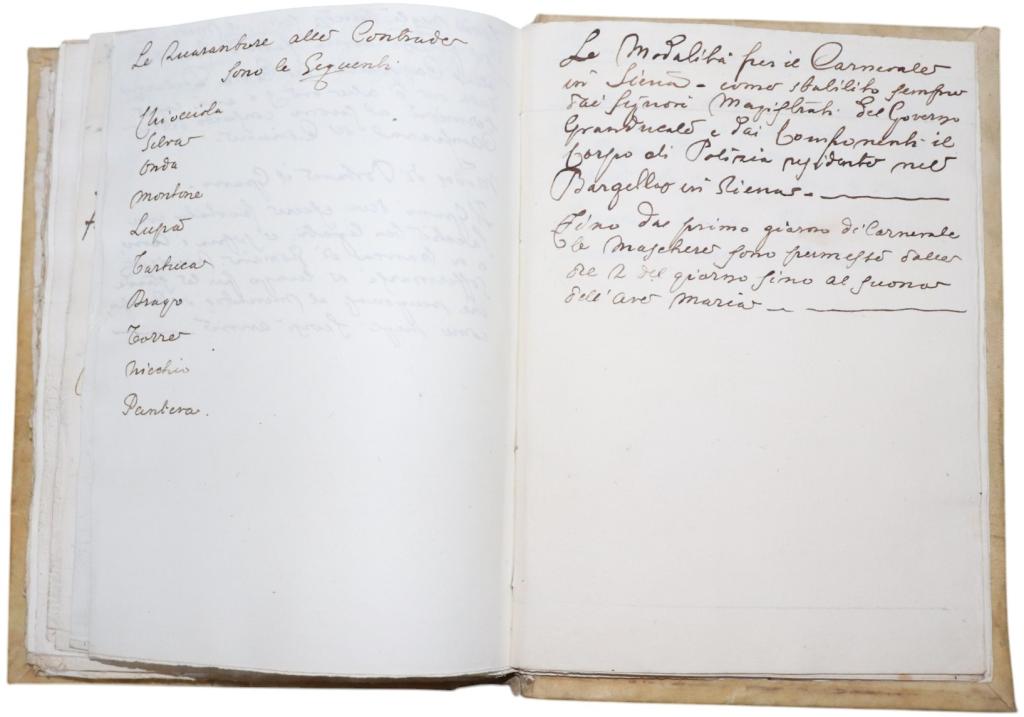 Le Quarantore alle Contrade
sono le Seguenti
Chiocciola
Selva
Onda
Montone
Lupa
Tartuca
Drago
Torre
Nicchio
Pantera.
Le Modalità per il Carnevale
in Siena - come stabilito sempre
dai Signori Magistrati del Governo
Granducale e dai Componenti il
Corpo di Polizia residente nel
Bargello in Siena -
Fino dal primo giorno di Carnevale
le Maschere sono permesse dalle
ore 2 del giorno sino al suono
dell'Ave Maria